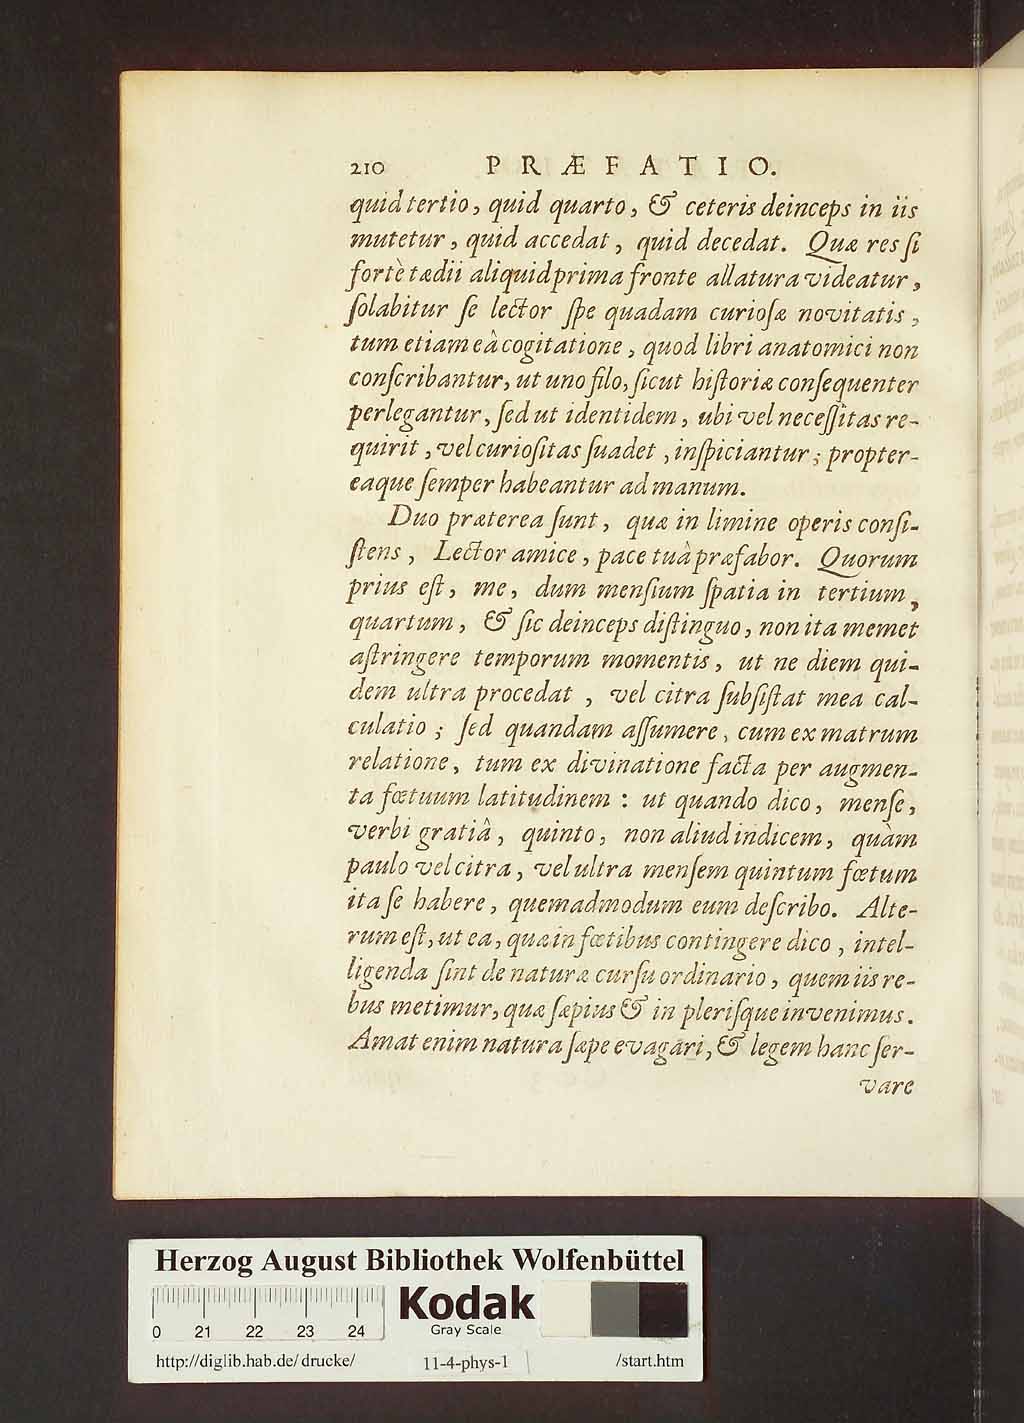 210 PRÆFATIO.
quid tertio, quid quarto, & ceteris deinceps in iis
mutetur, quid accedat, quid decedat. Quæ res ſi
fortè tædii aliquid prima fronte allatura videatur,
ſolabitur ſe lector ſpe quadam curioſæ novitatis,
tum etiam eâ cogitatione, quod libri anatomici non
conſcribantur, ut uno filo, ſicut hiſtoriæ conſequenter
perlegantur, ſed ut identidem, ubi vel neceſſitas re-
quirit, vel curioſitas ſuadet, inſpiciantur; propter-
eaque ſemper habeantur ad manum.
Duo præterea ſunt, quæ in limine operis conſi-
ſtens, Lector amice, pace tuâ præfabor. Quorum
prius eſt, me, dum menſium ſpatia in tertium,
quartum, & ſic deinceps diſtinguo, non ita memet
aſtringere temporum momentis, ut ne diem qui-
dem ultra procedat, vel citra ſubſiſtat mea cal-
culatio; ſed quandam aſſumere, cum ex matrum
relatione, tum ex divinatione facta per augmen-
ta fœtuum latitudinem: ut quando dico, menſe,
verbi gratiâ, quinto, non aliud indicem, quàm
paulo vel citra, vel ultra menſem quintum fœtum
ita ſe habere, quemadmodum eum deſcribo. Alte-
rum eſt, ut ea, quæ in fœtibus contingere dico, intel-
ligenda ſint de naturæ curſu ordinario, quem iis re-
bus metimur, quæ ſæpius & in pleriſque invenimus.
Amat enim natura ſæpe evagari, & legem hanc ſer-
vare
Herzog August Bibliothek Wolfenbüttel
0 21 22 23 24
Kodak
Gray Scale
http://diglib.hab.de/drucke/ 11-4-phys-1 /start.htm